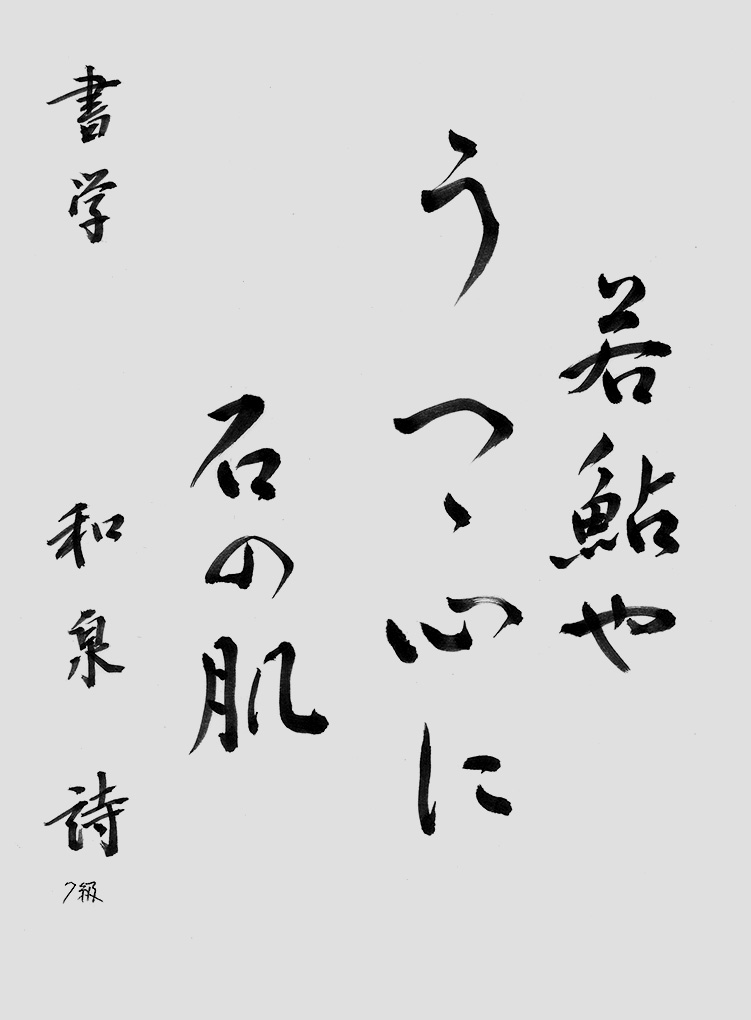 若鮎や
うつゝ心に
石の肌
書学 和泉 詩
7級